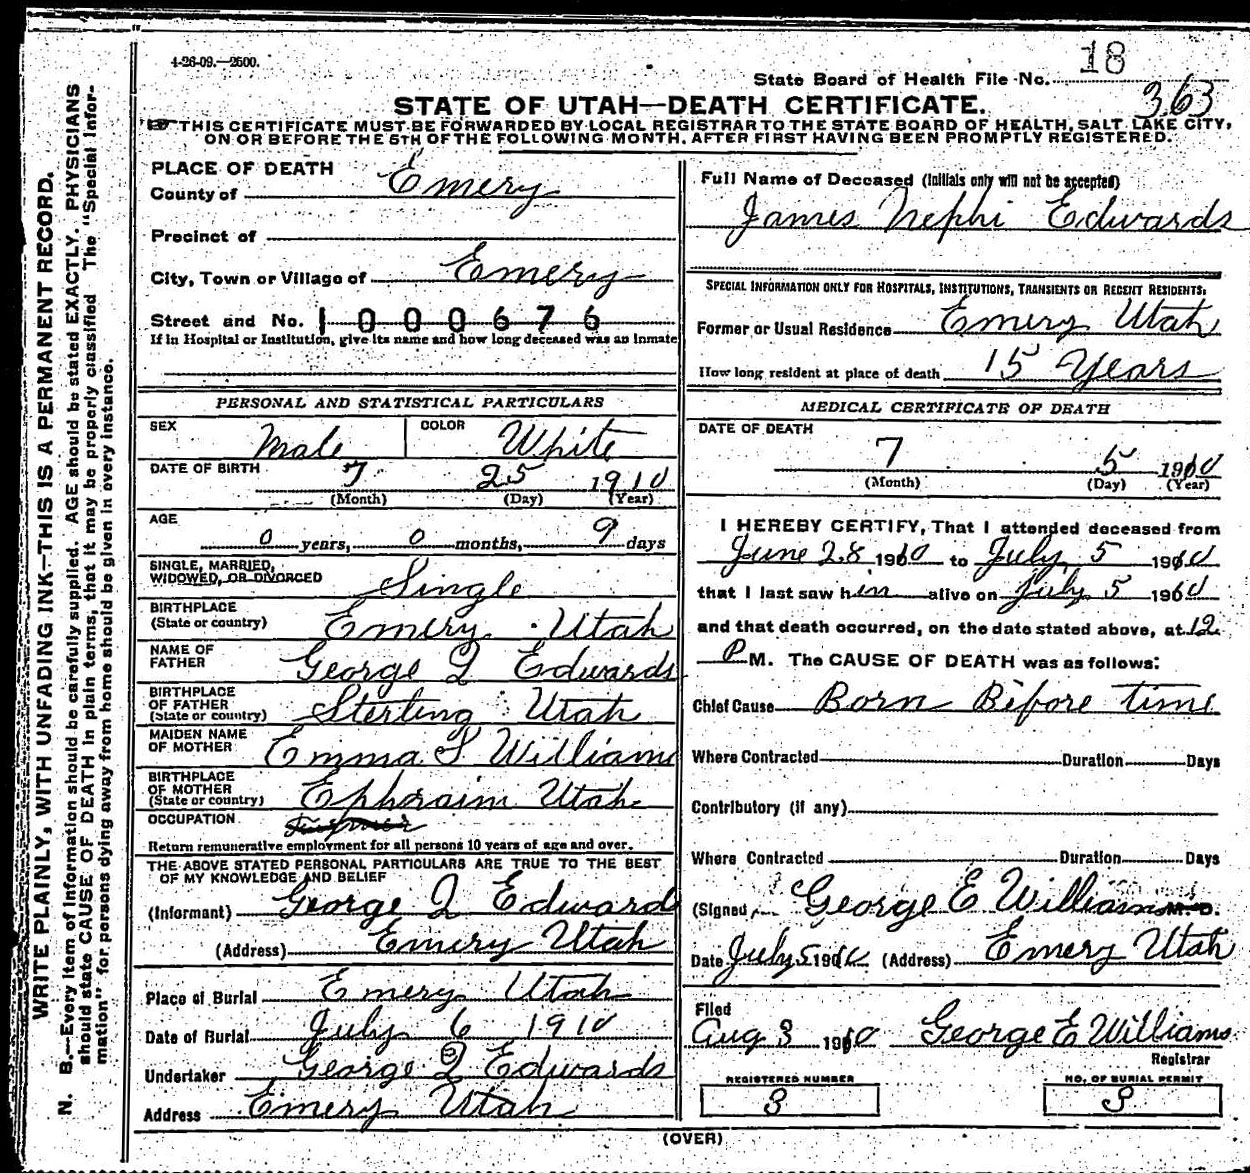 4-26-09.—2500.
State Board of Health File No. 18
363
STATE OF UTAH—DEATH CERTIFICATE.
THIS CERTIFICATE MUST BE FORWARDED BY LOCAL REGISTRAR TO THE STATE BOARD OF HEALTH, SALT LAKE CITY,
ON OR BEFORE THE 5TH OF THE FOLLOWING MONTH, AFTER FIRST HAVING BEEN PROMPTLY REGISTERED.
WRITE PLAINLY, WITH UNFADING INK—THIS IS A PERMANENT RECORD.
N. B.—Every item of information should be carefully supplied. AGE should be stated EXACTLY. PHYSICIANS
should state CAUSE OF DEATH in plain terms, that it may be properly classified. The "Special Infor-
mation" for persons dying away from home should be given in every instance.
PLACE OF DEATH
County of Emery
Precinct of
City, Town or Village of Emery
Street and No. 1000676
If in Hospital or Institution, give its name and how long deceased was an inmate
PERSONAL AND STATISTICAL PARTICULARS
SEX Male COLOR White
DATE OF BIRTH 7 25 1910
(Month) (Day) (Year)
AGE
0 years, 0 months, 9 days
SINGLE, MARRIED,
WIDOWED, OR DIVORCED Single
BIRTHPLACE
(State or country) Emery Utah
NAME OF
FATHER George Q Edwards
BIRTHPLACE
OF FATHER
(State or country) Sterling Utah
MAIDEN NAME
OF MOTHER Emma S Williams
BIRTHPLACE
OF MOTHER
(State or country) Ephraim Utah
OCCUPATION
Return remunerative employment for all persons 10 years of age and over.
THE ABOVE STATED PERSONAL PARTICULARS ARE TRUE TO THE BEST
OF MY KNOWLEDGE AND BELIEF
(Informant) George Q Edward
(Address) Emery Utah
Place of Burial Emery Utah
Date of Burial July 6 1910
Undertaker George Q Edwards
Address Emery Utah
Full Name of Deceased (Initials only will not be accepted)
James Nephi Edwards
SPECIAL INFORMATION ONLY FOR HOSPITALS, INSTITUTIONS, TRANSIENTS OR RECENT RESIDENTS:
Former or Usual Residence Emery Utah
How long resident at place of death 15 Years
MEDICAL CERTIFICATE OF DEATH
DATE OF DEATH
7 5 1910
(Month) (Day) (Year)
I HEREBY CERTIFY, That I attended deceased from
June 28 1910 to July 5 1910
that I last saw him alive on July 5 1910
and that death occurred, on the date stated above, at 12
P M. The CAUSE OF DEATH was as follows:
Chief Cause Born Before time
Where Contracted Duration Days
Contributory (if any)
Where Contracted Duration Days
(Signed, George E Williams M. D.
Date July 5 1910 (Address) Emery Utah
Filed
Aug 3 1910 George E Williams
Registrar
REGISTERED NUMBER
3
NO. OF BURIAL PERMIT
3
(OVER)